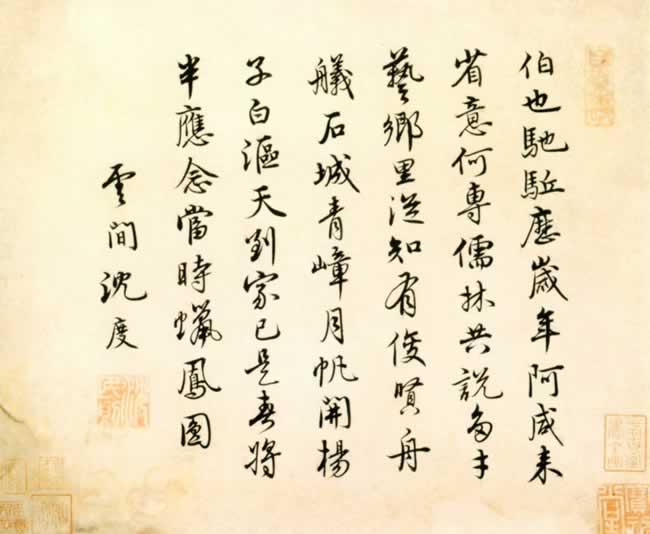 伯也馳駈應歲年阿咸来
省意何専儒林共説多才
藝鄉里從知有俊賢舟
艤石城青嶂月帆開楊
子白漚天到家已是春將
半應念當時蠟鳳圖
雲間沈度